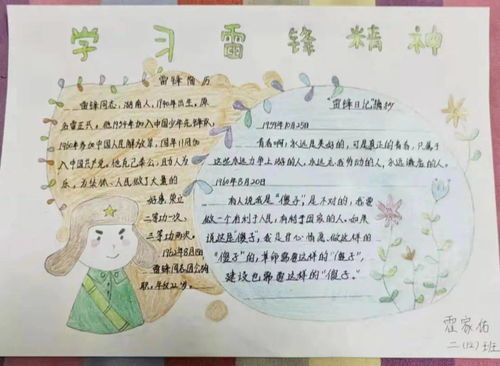 学习雷锋精神
雷锋简历
雷锋同志，湖南人，1940年出生，原
名雷正兴。他1954年加入中国少年先锋队，
1960年参加中国人民解放军，同年11月加
入中国共产党。他克己奉公，助人为
乐，为集体、人民做了大量的
好事，荣立
二等功一次，
三等功两次。
1962年8月15日
雷锋同志因公殉
职，年仅22岁。
"雷锋日记"摘抄
1959年10月25日
青春啊，永远是美好的，可是真正的青春，只属于
这些永远力争上游的人，永远忘我劳动的人，永远谦虚的人。
1960年8月20日
有人说我是"傻子"，是不对的，我要
做一个有利于人民，有利于国家的人。如果
说这是"傻子"，我是甘心情愿做这样的
"傻子"的，革命需要这样的"傻子"，
建设也需要这样的"傻子"。
霍家佰
二（12）班